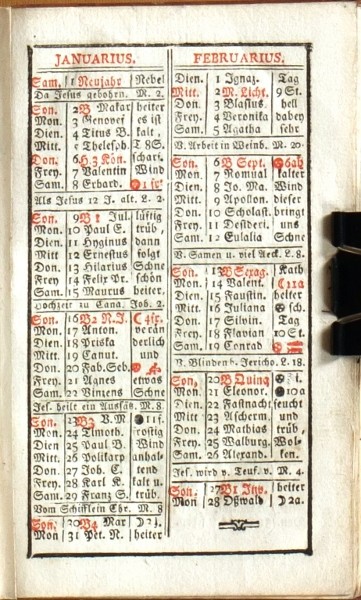 JANUARIUS.
Sam. 1 Neujahr Nebel
Da Jesus gebohrn. M. 2.
Son. 2 B Makar heiter
Mon. 3 Genovef es ist
Dien. 4 Titus B. kalt,
Mitt. 5 Thelesph. T 8S.
Don. 6 H. 3 Kön. scharf.
Frey. 7 Valentin Wind
Sam. 8 Erhard.
Als Jesus 12 J. alt. L. 2.
Son. 9 B 1 Jul. lüftig
Mon. 10 Paul E. trüb,
Dien. 11 Hyginus dann
Mitt 12 Ernestus folgt
Don. 13 Hilarius Schne
Frey. 14 Felix Pr. schön
Sam. 15 Maurus heiter.
Hochzeit zu Cana. Joh. 2.
Son. 16 B2 N. J.
Mon. 17 Anton. verän
Dien. 18 Priska derlich
Mitt. 19 Canut. und
Don. 20 Fab. Seb.
Frey. 21 Agnes etwas
Sam. 22 Vinzens Schne
Jes. heilt ein Aussätz. M. 8.
Son. 23 B3 V. M
Mon. 24 Timoth. frostig
Dien. 25 Paul B. Wind
Mitt. 26 Polikarp anhal-
Don. 27 Joh. C. tend
Frey. 28 Karl K. kalt u.
Sam. 29 Franz S. trüb.
Vom Schifflein Chr. M. 8
Son. 30 B4 Mar
Mon 31 Pet. N. heiter
FEBRUARIUS.
Dien. 1 Ignaz. Tag
Mitt. 2 M. Licht. 9 St.
Don. 3 Blasius. hell
Frey. 4 Veronika dabey
Sam. 5 Agatha sehr
V. Arbeit in Weinb. M. 20.
Son. 6 B Sept.
Mon. 7 Romual kalter
Dien. 8 Jo. Ma. Wind
Mitt. 9 Apollon. dieser
Don. 10 Scholast. bringt
Frey. 11 Desideri. uns
Sam. 12 Eulalia Schne
V. Samen u. viel Aeck. L. 8.
Son. 13 B Sexag. Kath
Mon. 14 Valent.
Dien. 15 Faustin. heiter
Mitt. 16 Juliana sch.
Don. 17 Silvin. Tag
Frey. 18 Flavian 10 St.
Sam. 19 Conrad
V. Blinden b. Jericho. L. 18.
Son. 20 B Quinq
Mon. 21 Eleonor.
Dien. 22 Fastnacht. feucht
Mitt. 23 Ascherm. und
Don. 24 Mathias trüb,
Frey. 25 Walburg. Wol-
Sam. 26 Alexand. ken.
Jes. wird v. Teuf. v. M. 4.
Son. 27 B1 Inv. heiter
Mon 28 Oßwald